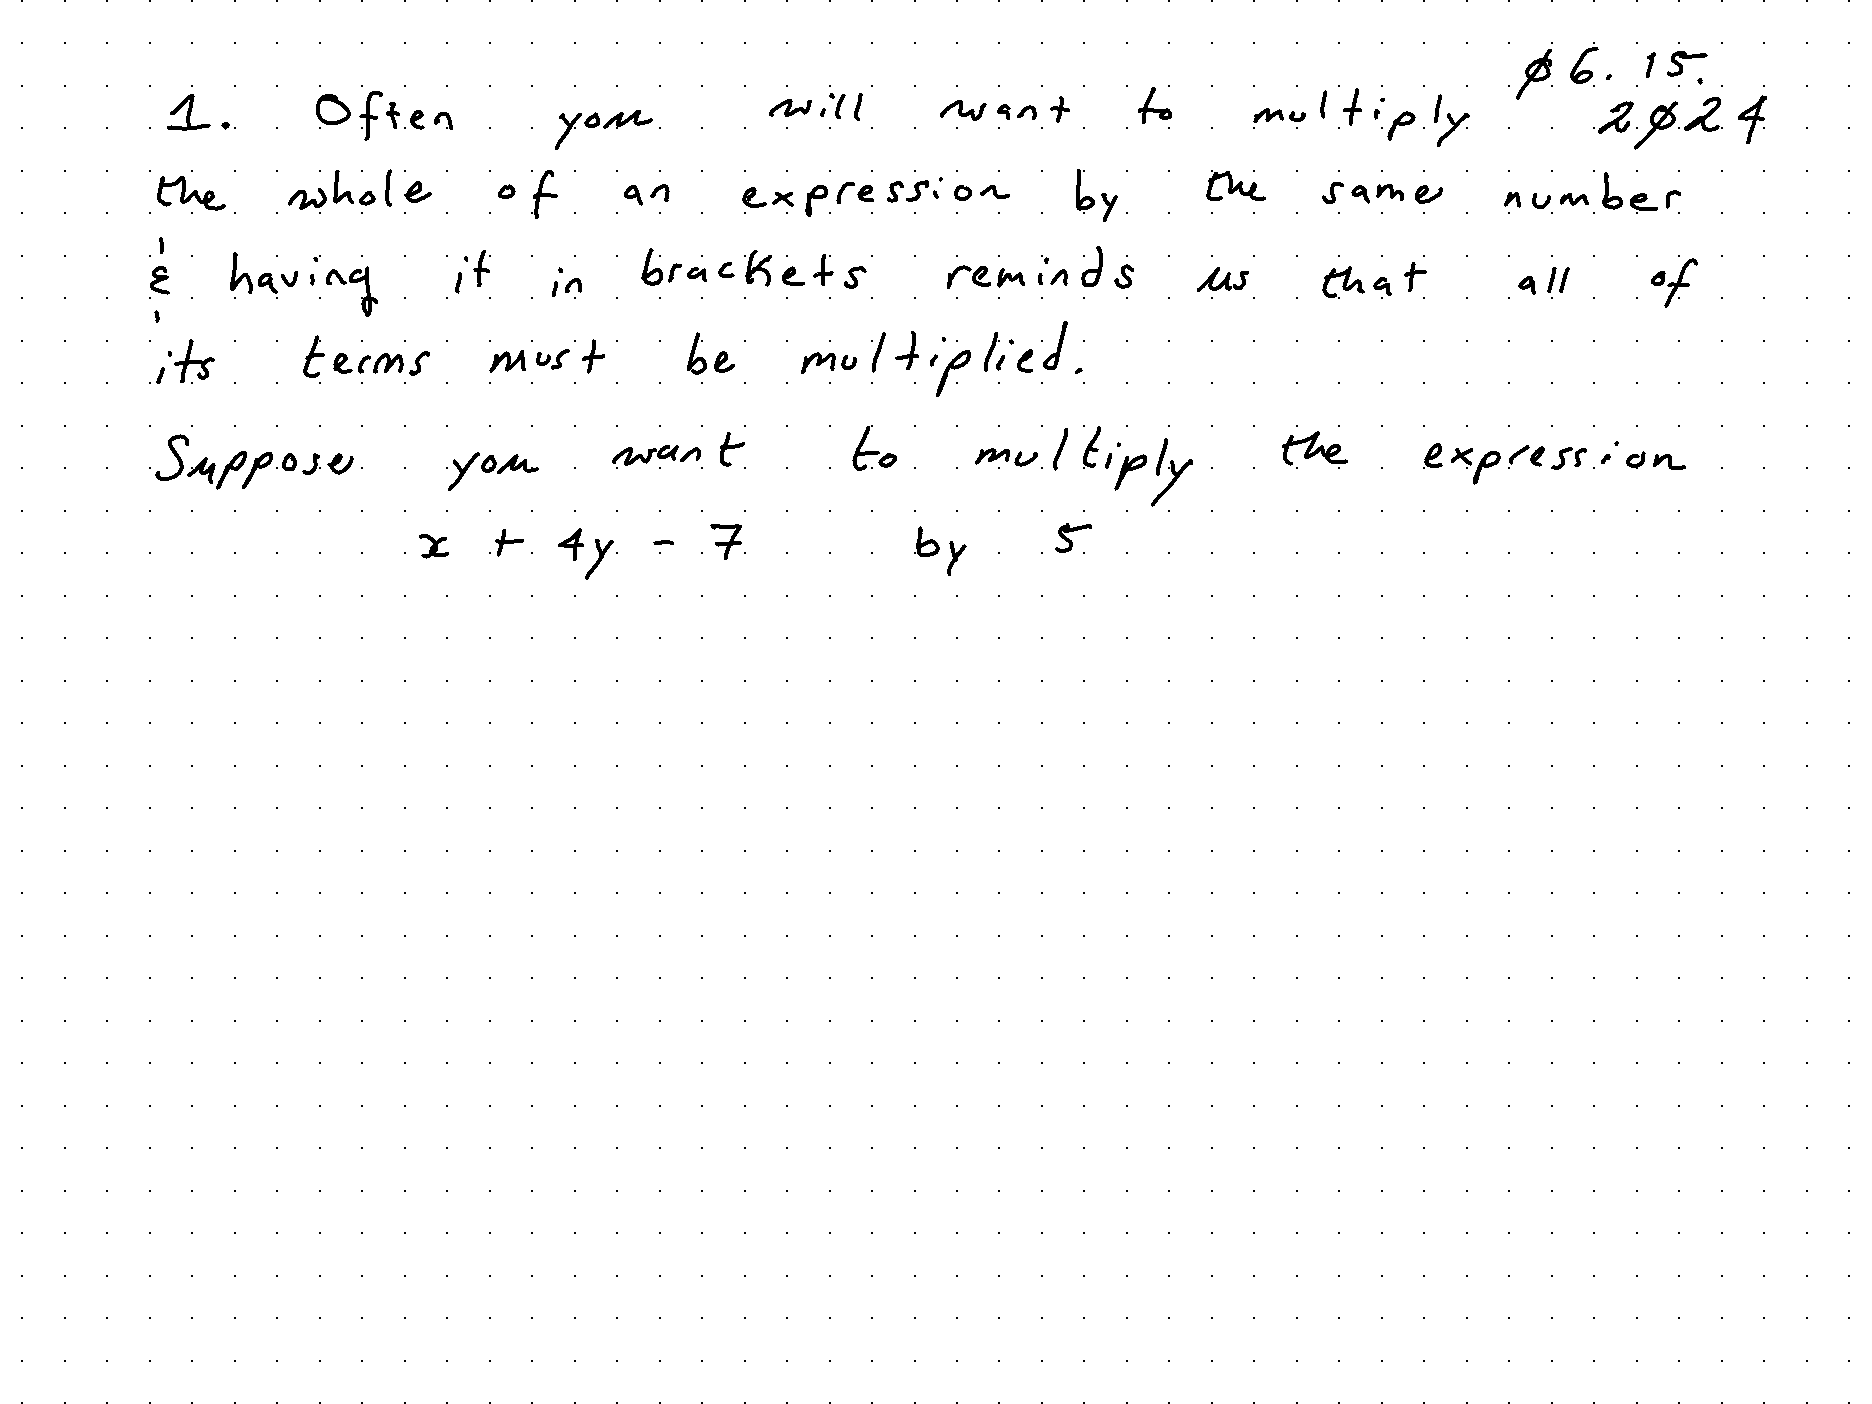 ø6.15.
1. Often you will want to multiply 2ø24
the whole of an expression by the same number
& having it in brackets reminds us that all of
its terms must be multiplied.
Suppose you want to multiply the expression
x + 4y - 7 by 5